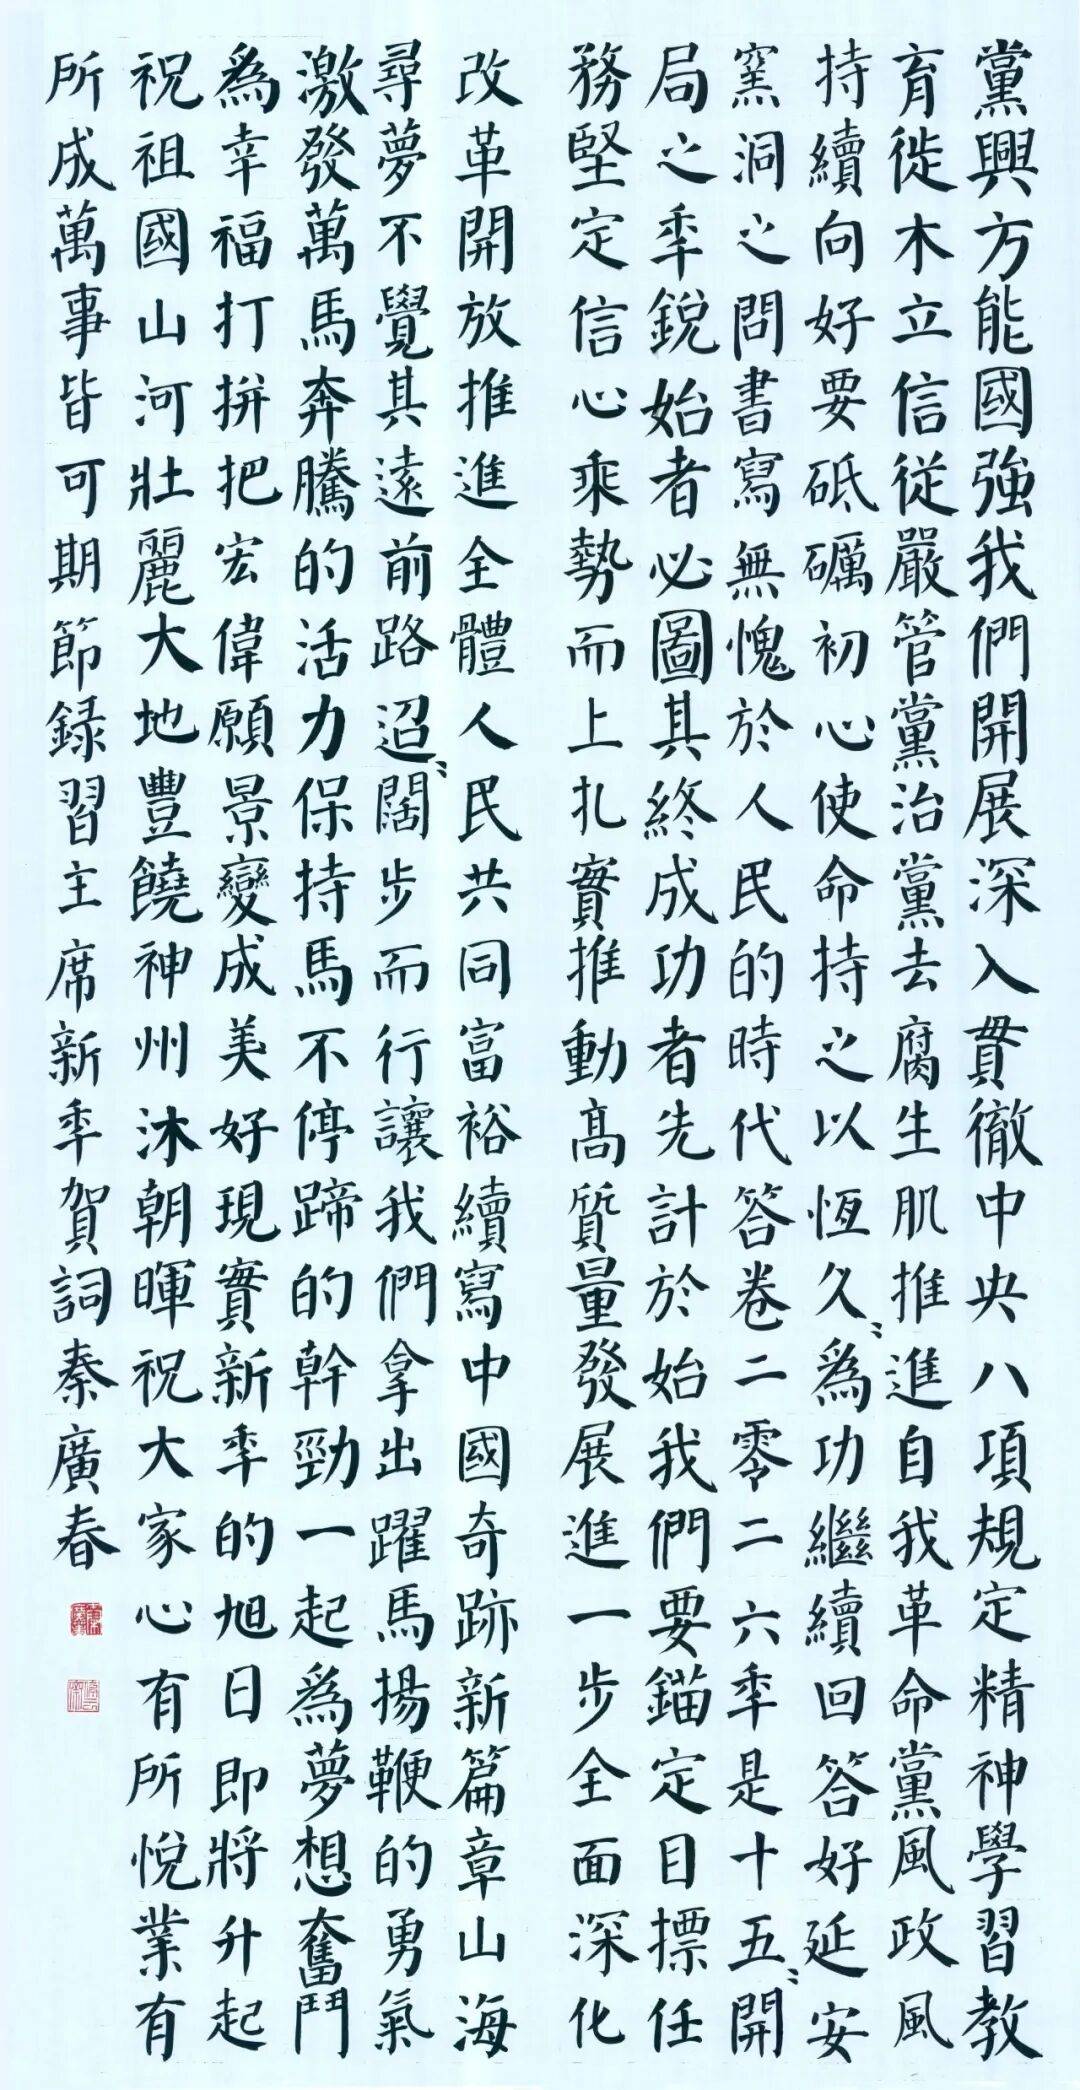 黨興方能國強我們開展深入貫徹中央八項規定精神學習教
育徙木立信從嚴管黨治黨去腐生肌推進自我革命黨風政風
持續向好要砥礪初心使命持之以恆久〻爲功繼續回答好延安
窯洞之問書寫無愧於人民的時代答卷二零二六秊是十五〻開
局之秊銳始者必圖其終成功者先計於始我們要錨定目標任
務堅定信心乘勢而上扎實推動高質量發展進一步全面深化
改革開放推進全體人民共同富裕續寫中國奇跡新篇章山海
尋夢不覺其遠前路迢〻闊步而行讓我們拿出躍馬揚鞭的勇氣
激發萬馬奔騰的活力保持馬不停蹄的幹勁一起爲夢想奮鬥
爲幸福打拼把宏偉願景變成美好現實新秊的旭日即將升起
祝祖國山河壯麗大地豐饒神州沐朝暉祝大家心有所悅業有
所成萬事皆可期節録習主席新秊賀詞秦廣春